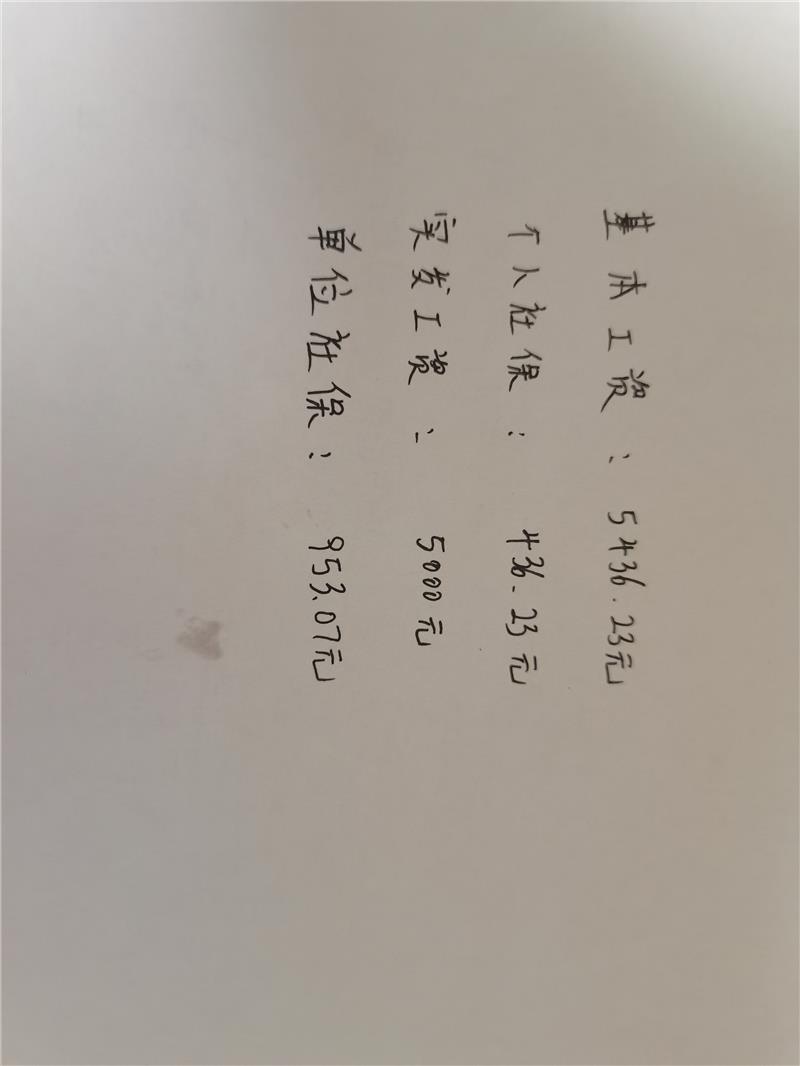 基本工资：5436.23元
个人社保：436.23元
实发工资：5000元
单位社保：953.07元